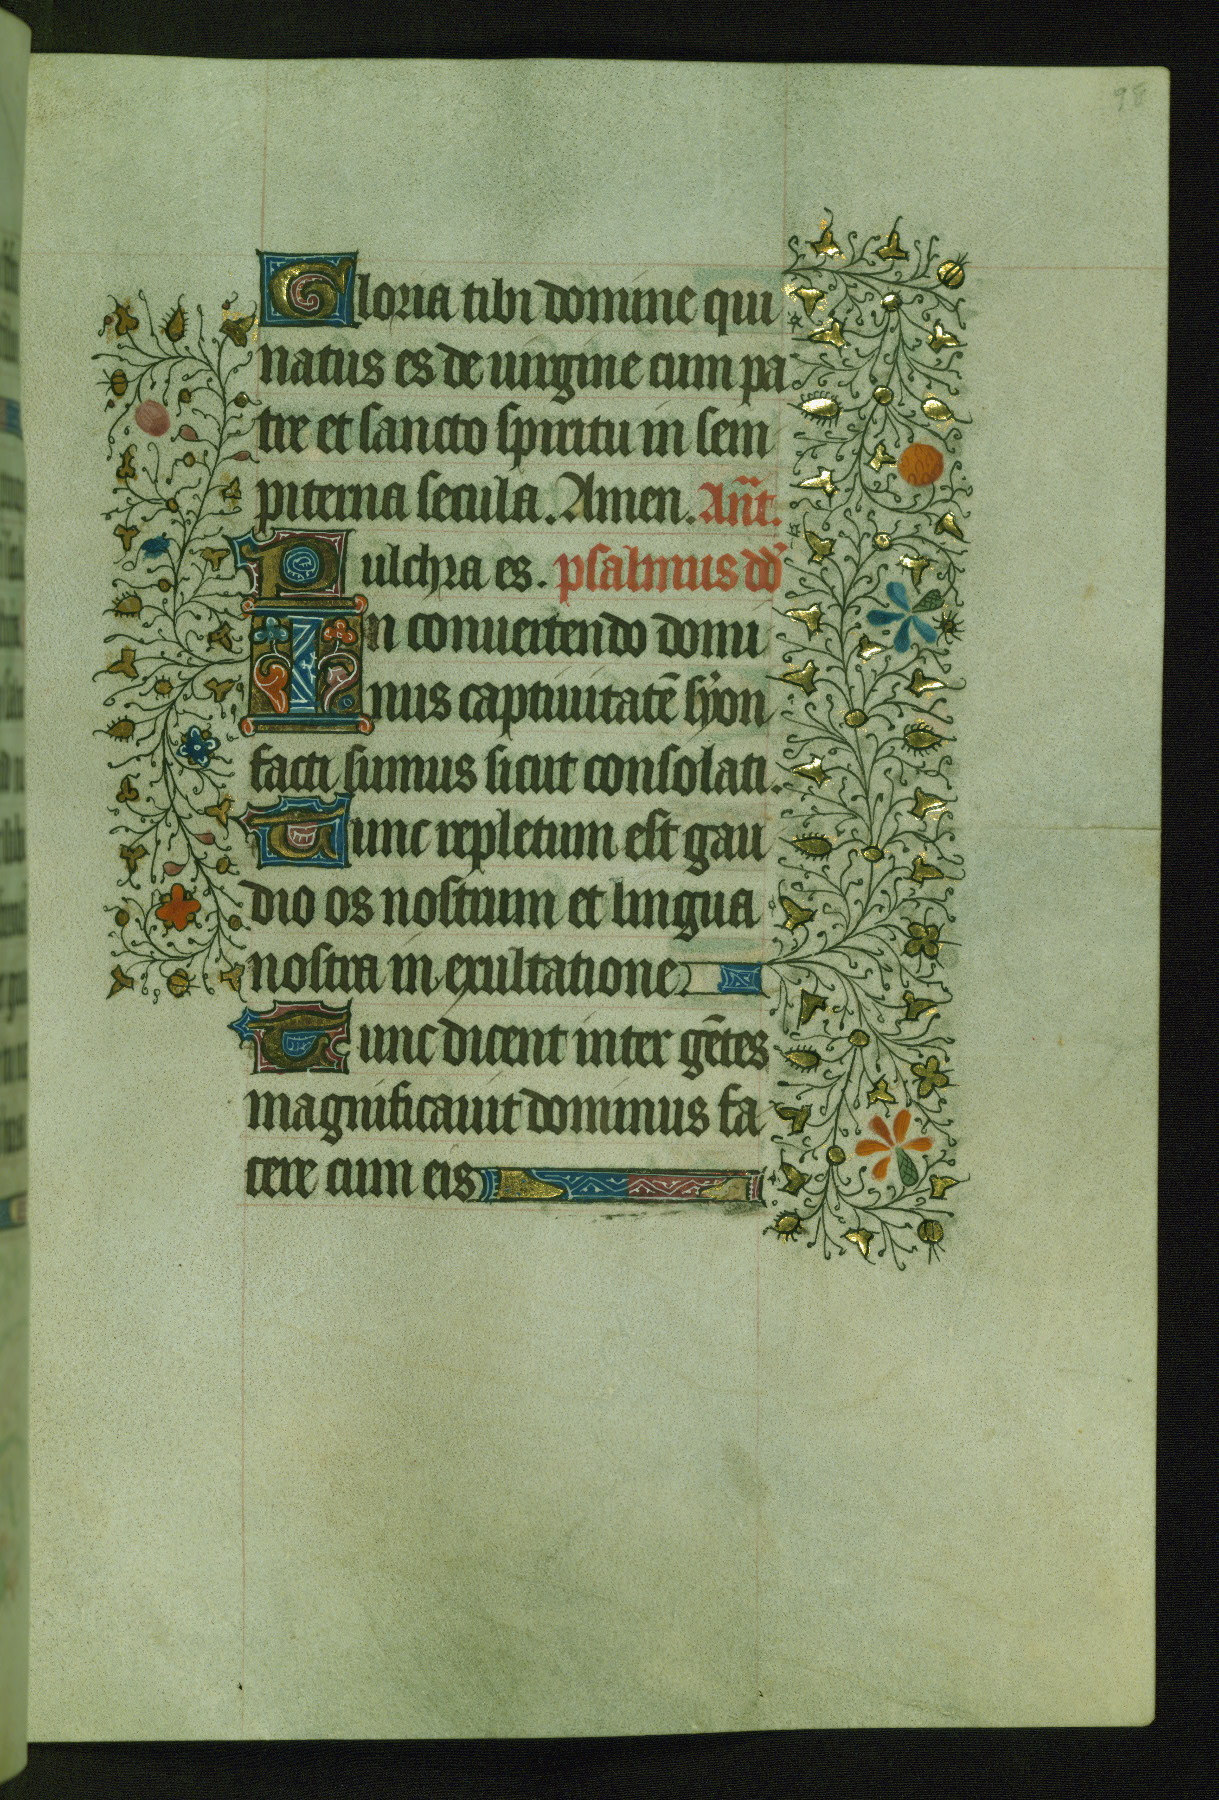 98
Gloria tibi domine qui
natus es de uirgine cum pa
tre et sancto spiritu in sem
piterna secula. Amen. Añt.
Pulchra es. psalmus dd̄
In conuertendo domi
nus captiuitatē syon
facti sumus sicut consolati.
Tunc repletum est gau
dio os nostrum et lingua
nostra in exultatione.
Tunc dicent inter gētes
magnificauit dominus fa
cere cum eis